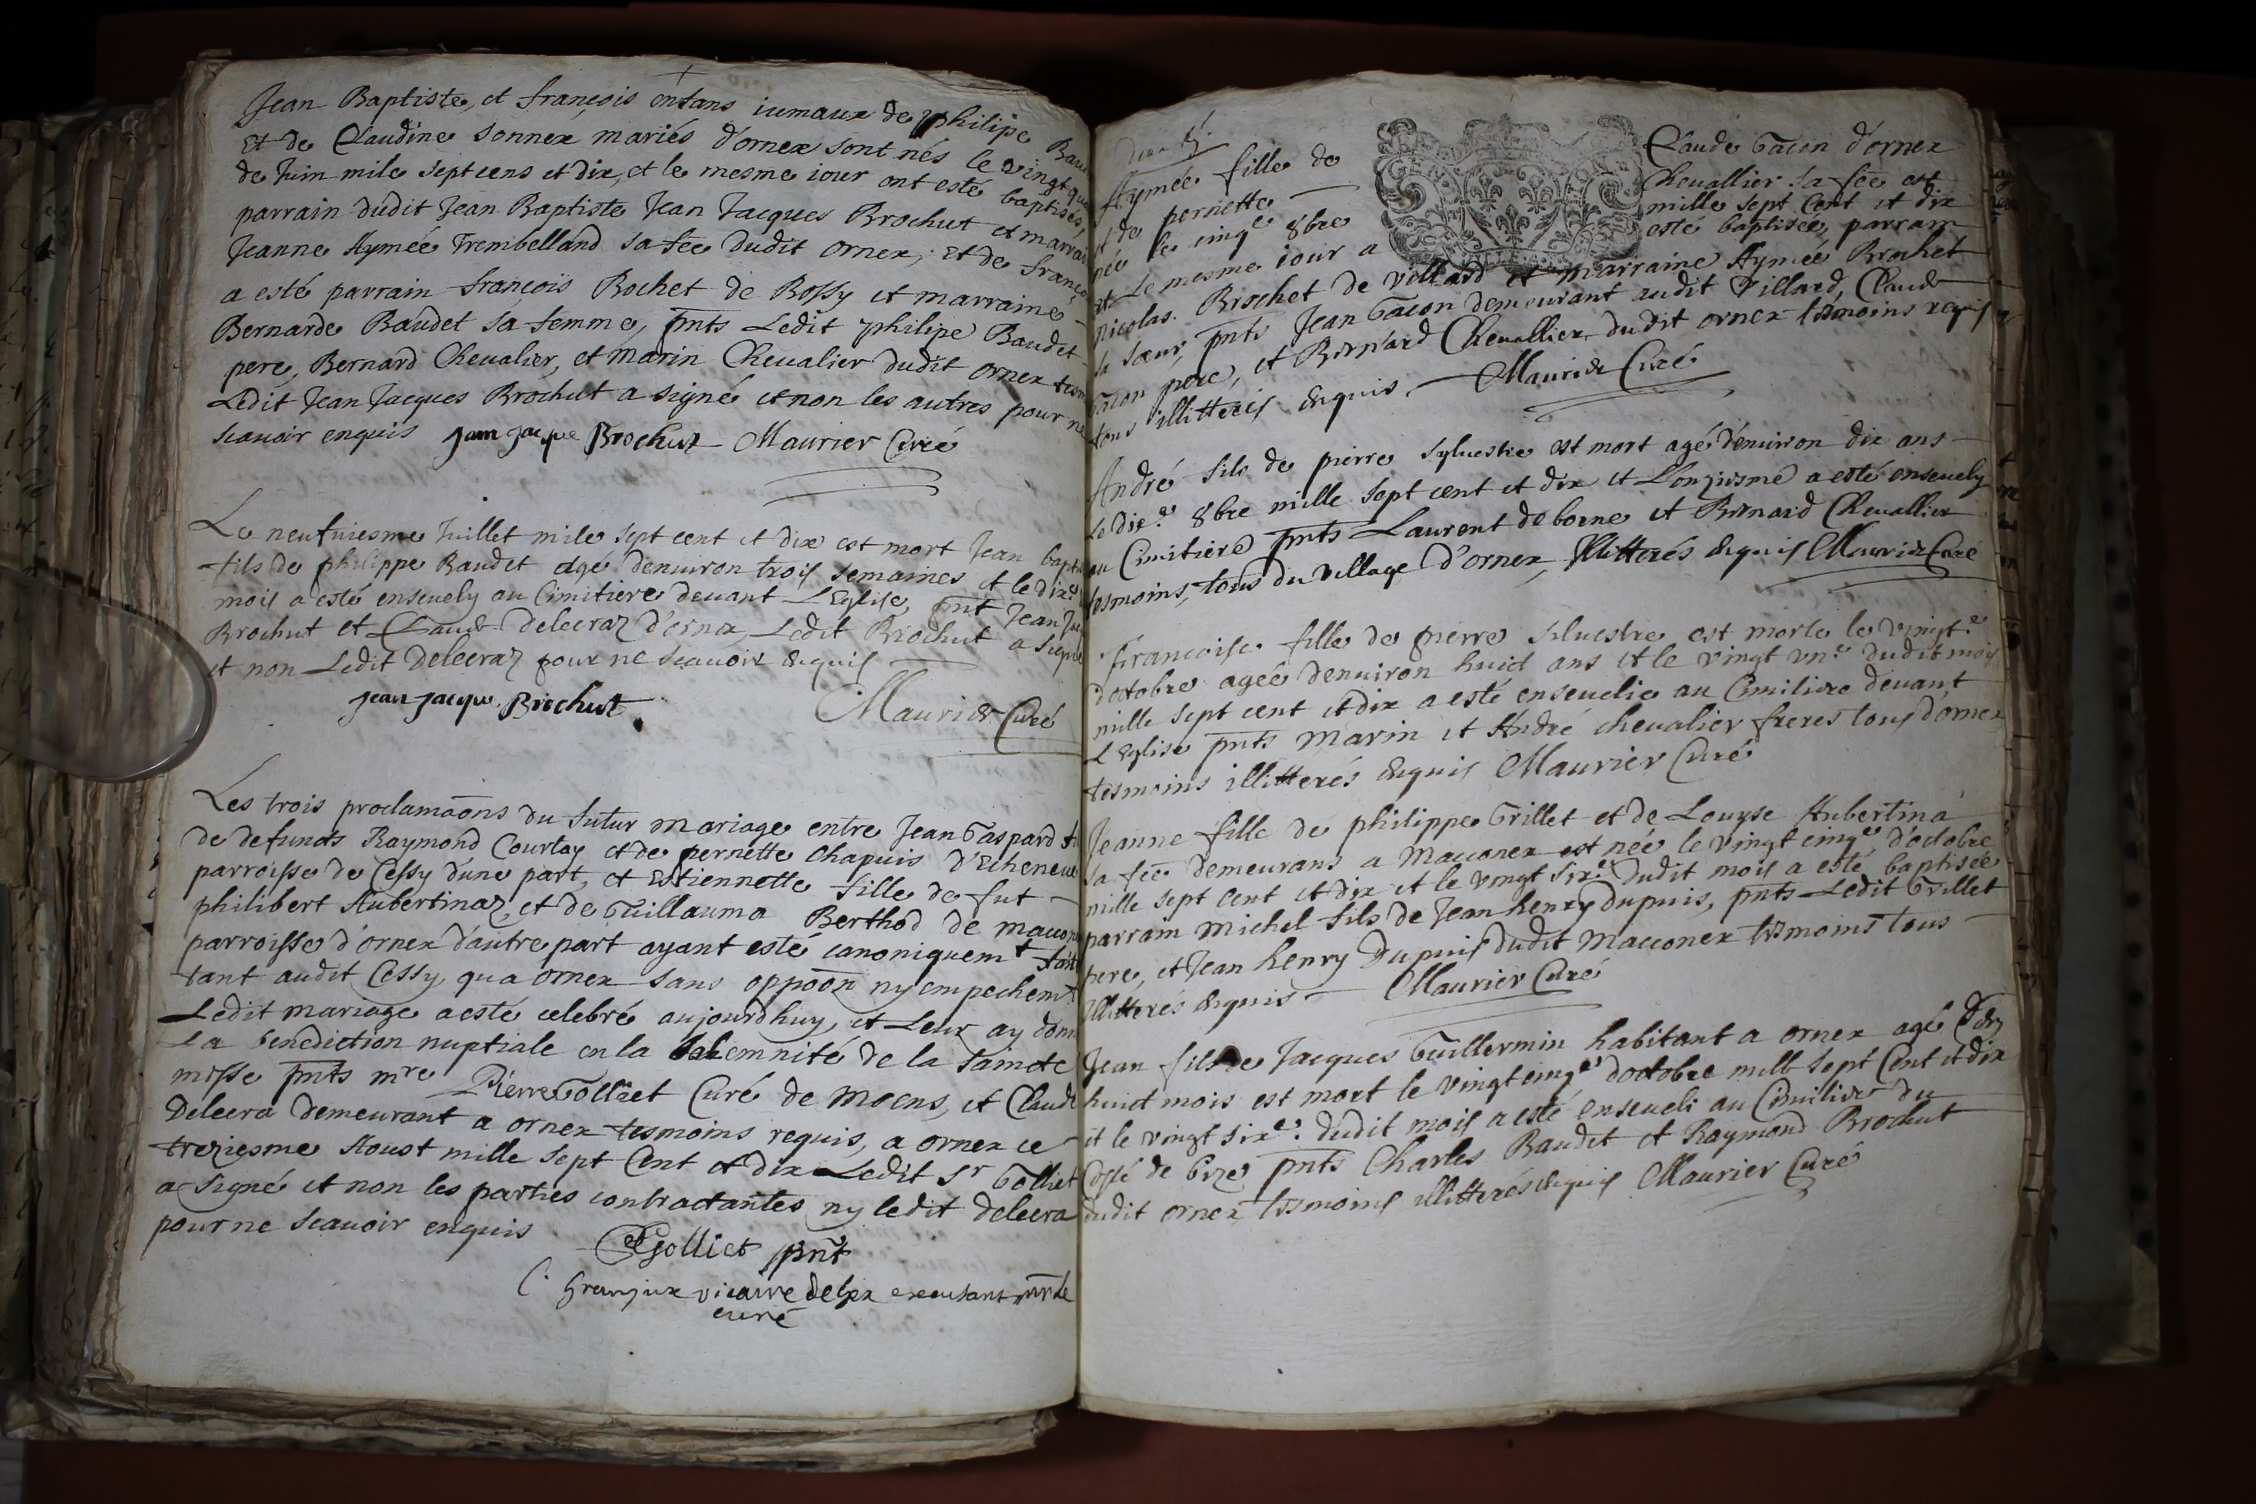 Jean Baptiste, et françois enfans iumaux de philipe Bau
Et de Claudine Sonnex mariés d'ornex sont nés le vingt qua
de Juin mile sept cens et dix, et le mesme iour ont esté baptisés,
parrain dudit Jean Baptiste Jean Jacques Brochut et marrai
Jeanne Aymée Trembelland sa fee dudit ornex, Et de franço
a esté parrain françois Bochet de Bossy et marraine
Bernarde Baudet sa femme, pnts Ledit philipe Baudet
pere, Bernard Chevalier, et marin Chevalier dudit ornex tesm
Ledit Jean Jacques Brochut a signé et non les autres pour ne
scavoir enquis Jean Jaque Brochut Maurier Curé
Le neufuiesme Juillet mile sept cent et dix est mort Jean bapti
fils de philippe Baudet agé denuiron trois semaines et le dix.e
mois a esté enseuely au Cimitiere deuant L'Eglise, pnt Jean Ja
Brochut et Claude Deleeraz d'ornex, Ledit Brochut a signé
et non Ledit Deleeraz pour ne scauoir Enquis
Jean Jacque Brochut Maurier Curé
Les trois proclamaons du futur mariage entre Jean Gaspard fi
de defuncts Raymond Courtay et de pernette Chapuis d'Echeneue
parroisse de Cessy dune part, et Estiennette fille de fut
philibert Aubertinaz, et de Guillauma Berthod de macon
parroisse d'ornex d'autre part ayant esté canoniquemt fait
tant audit Cessy, qu a ornex sans oppoon ny empechemt
Ledit mariage a esté celebré aujourdhuy, et Leur ay donn
La benediction nuptiale en la solemnité de la saincte
messe pnts mre Pierre Golliet Curé de Moens, et Claude
Deleera demeurant a ornex tesmoins requis, a ornex ce
treziesme Aoust mille sept Cent et dix Ledit Sr Golliet
a signé et non les parties contractantes ny ledit deleera
pour ne scavoir enquis
Golliet pnt
Granjux vicaire de Gex executant mr le
curé
Aymée fille de Claude Gacon d'ornex
et de pernette Chevallier sa fee est
née le cinqe 8bre mille sept Cent et dix
et Le mesme iour a esté baptisée, parrain
Nicolas Brochet de Villard et marraine Aymée Brochet
sa sœur, pnts Jean Gacon demeurant audit Villard, Claude
Gacon pere, et Bernard Chevallier dudit ornex tesmoins requis
tous illitterés Enquis Maurier Curé
André fils de pierre Sylvestre est mort agé d'enuiron dix ans
Le dix.e 8bre mille sept cent et dix et L'onziesme a esté enseuely
au Cimitiere pnts Laurent deborne et Bernard Cheuallier
tesmoins, tous du village d'ornex, Illitterés Enquis Maurier Curé
francoise fille de pierre Siluestre est morte le vingt.e
d'octobre ageé denuiron huict ans et le vingt vn.e dudit mois
mille sept cent et dix a esté enseuelie au Cimitiere deuant
L'Eglise pnts Marin et André chevalier freres tous d'ornex
tesmoins illitterés Enquis Maurier Curé
Jeanne fille de philippe Grillet et de Louyse Aubertina
sa fee demeurans a Maconex est née le vingt cinq.e d'octobre
mille sept cent et dix et le vingt six.e dudit mois a esté baptisée
parrain michel fils de Jean henry Dupuis, pnts Ledit Grillet
pere, et Jean henry Dupuis dudit Maconex tesmoins tous
Illitterés Enquis Maurier Curé
Jean fils de Jacques Guillermin habitant a ornex agé d'env
huict mois est mort le vingt cinq.e d'octobre mille sept Cent et dix
et le vingt six.e dudit mois a esté enseueli au Cimitiere du
Costé de bize pnts Charles Baudet et Raymond Brochut
dudit ornex tesmoins illitterés Enquis Maurier Curé